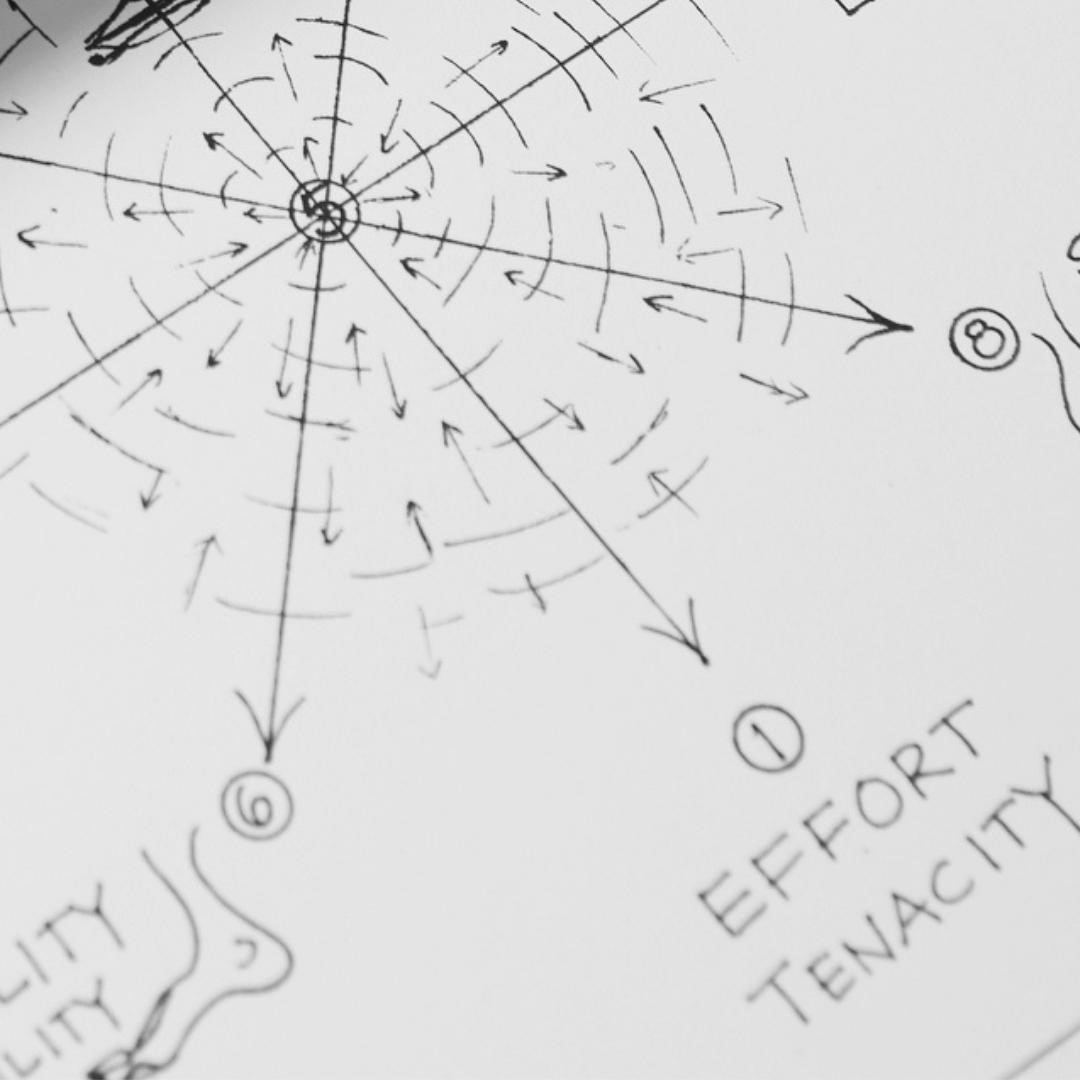 5
8
1
EFFORT
TENACITY
6
LITY
ILITY